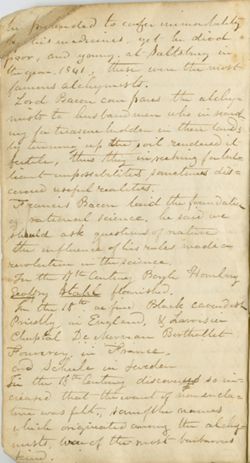 he pretended to confer immortality
by his medicines yet he died
poor, and young, at Saltsburg in
the year 1541, these were the most
famous alchymests.
Lord Bacon compares the alchy
mests to husbandmen who in search
ing for treasure hidden in their lands
by turning up the soil rendered it
fertile, thus they in seeking for bril
liant impossibilities sometimes dis
covered useful realities.
Francis Bacon laid the foundation
of rational science, he said we
should ask questions of nature
the influence of his rules made a
revolution in the science.
In the 17th Century Boyle Homberg
Geoffry Stahl flourished.
In the 18th as fine Black Cavendish
Priestly in England, & Lavoisier
Chaptal De Berthollet
Fourcroy, in France,
and Scheele in Sweden
In the 18th Century discoveries so in
creased that the want of nomencla
ture was felt, some of the names
which originated among the alchy
mists, were of the most barbarous
kind.